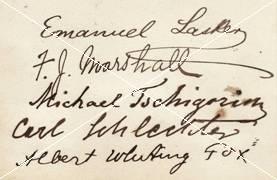 Emanuel Lasker
F. J. Marshall
Michael Tschigorin
Carl Schlechter
Albert Whiting Fox